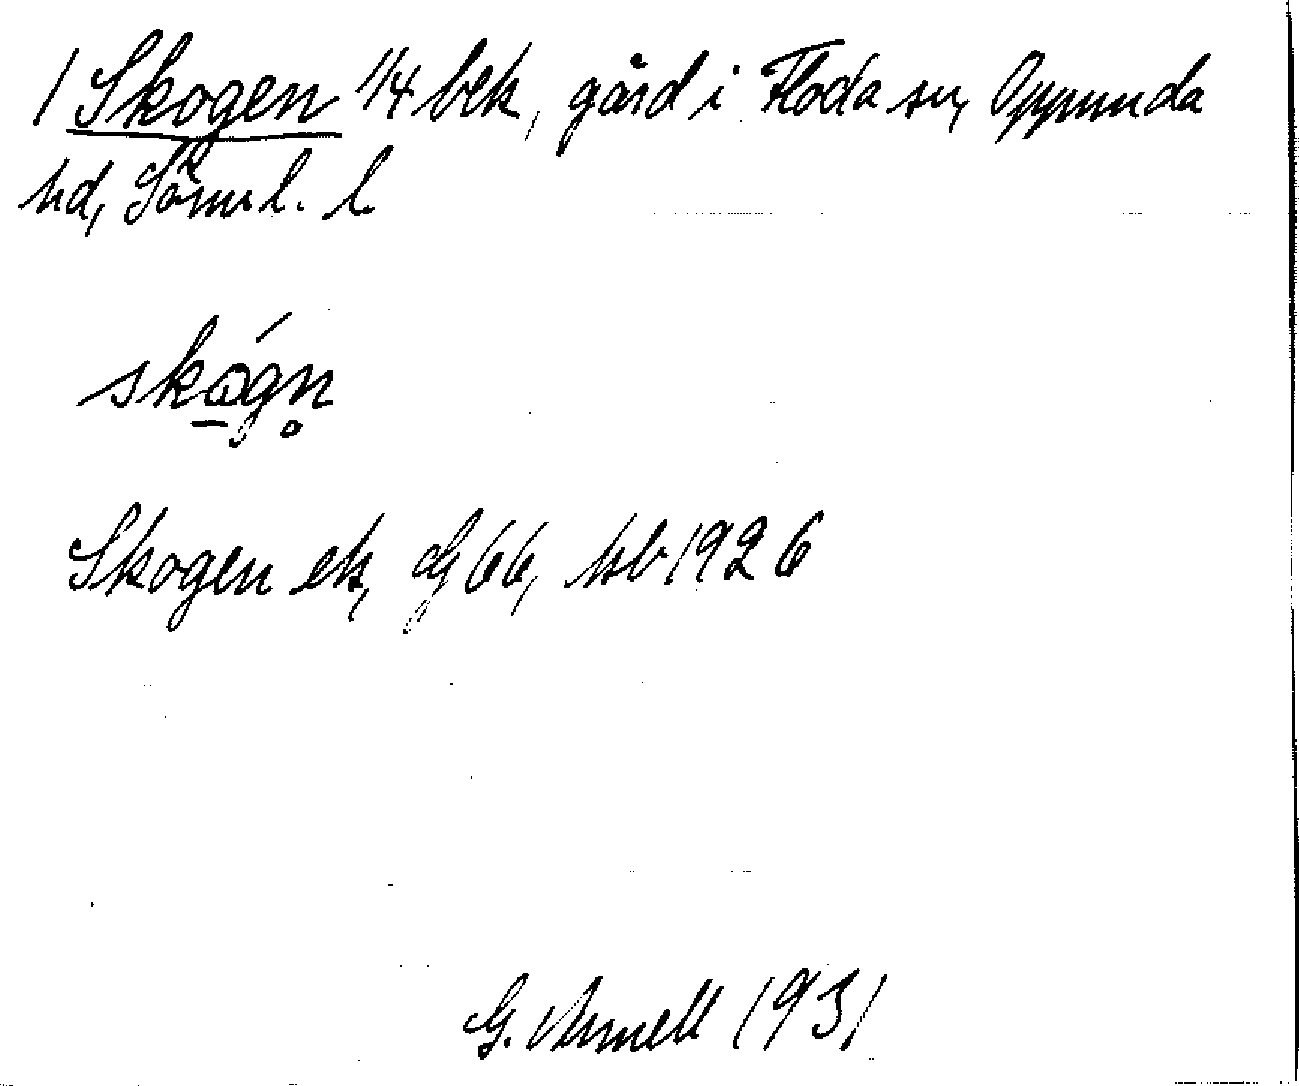 1 Skogen 1/4 bek, gård i Floda sn, Oppunda
hd, Söml. l.
skógn̥
Skogen ek, Gg 66, kb 1926
G. Arnell 1931